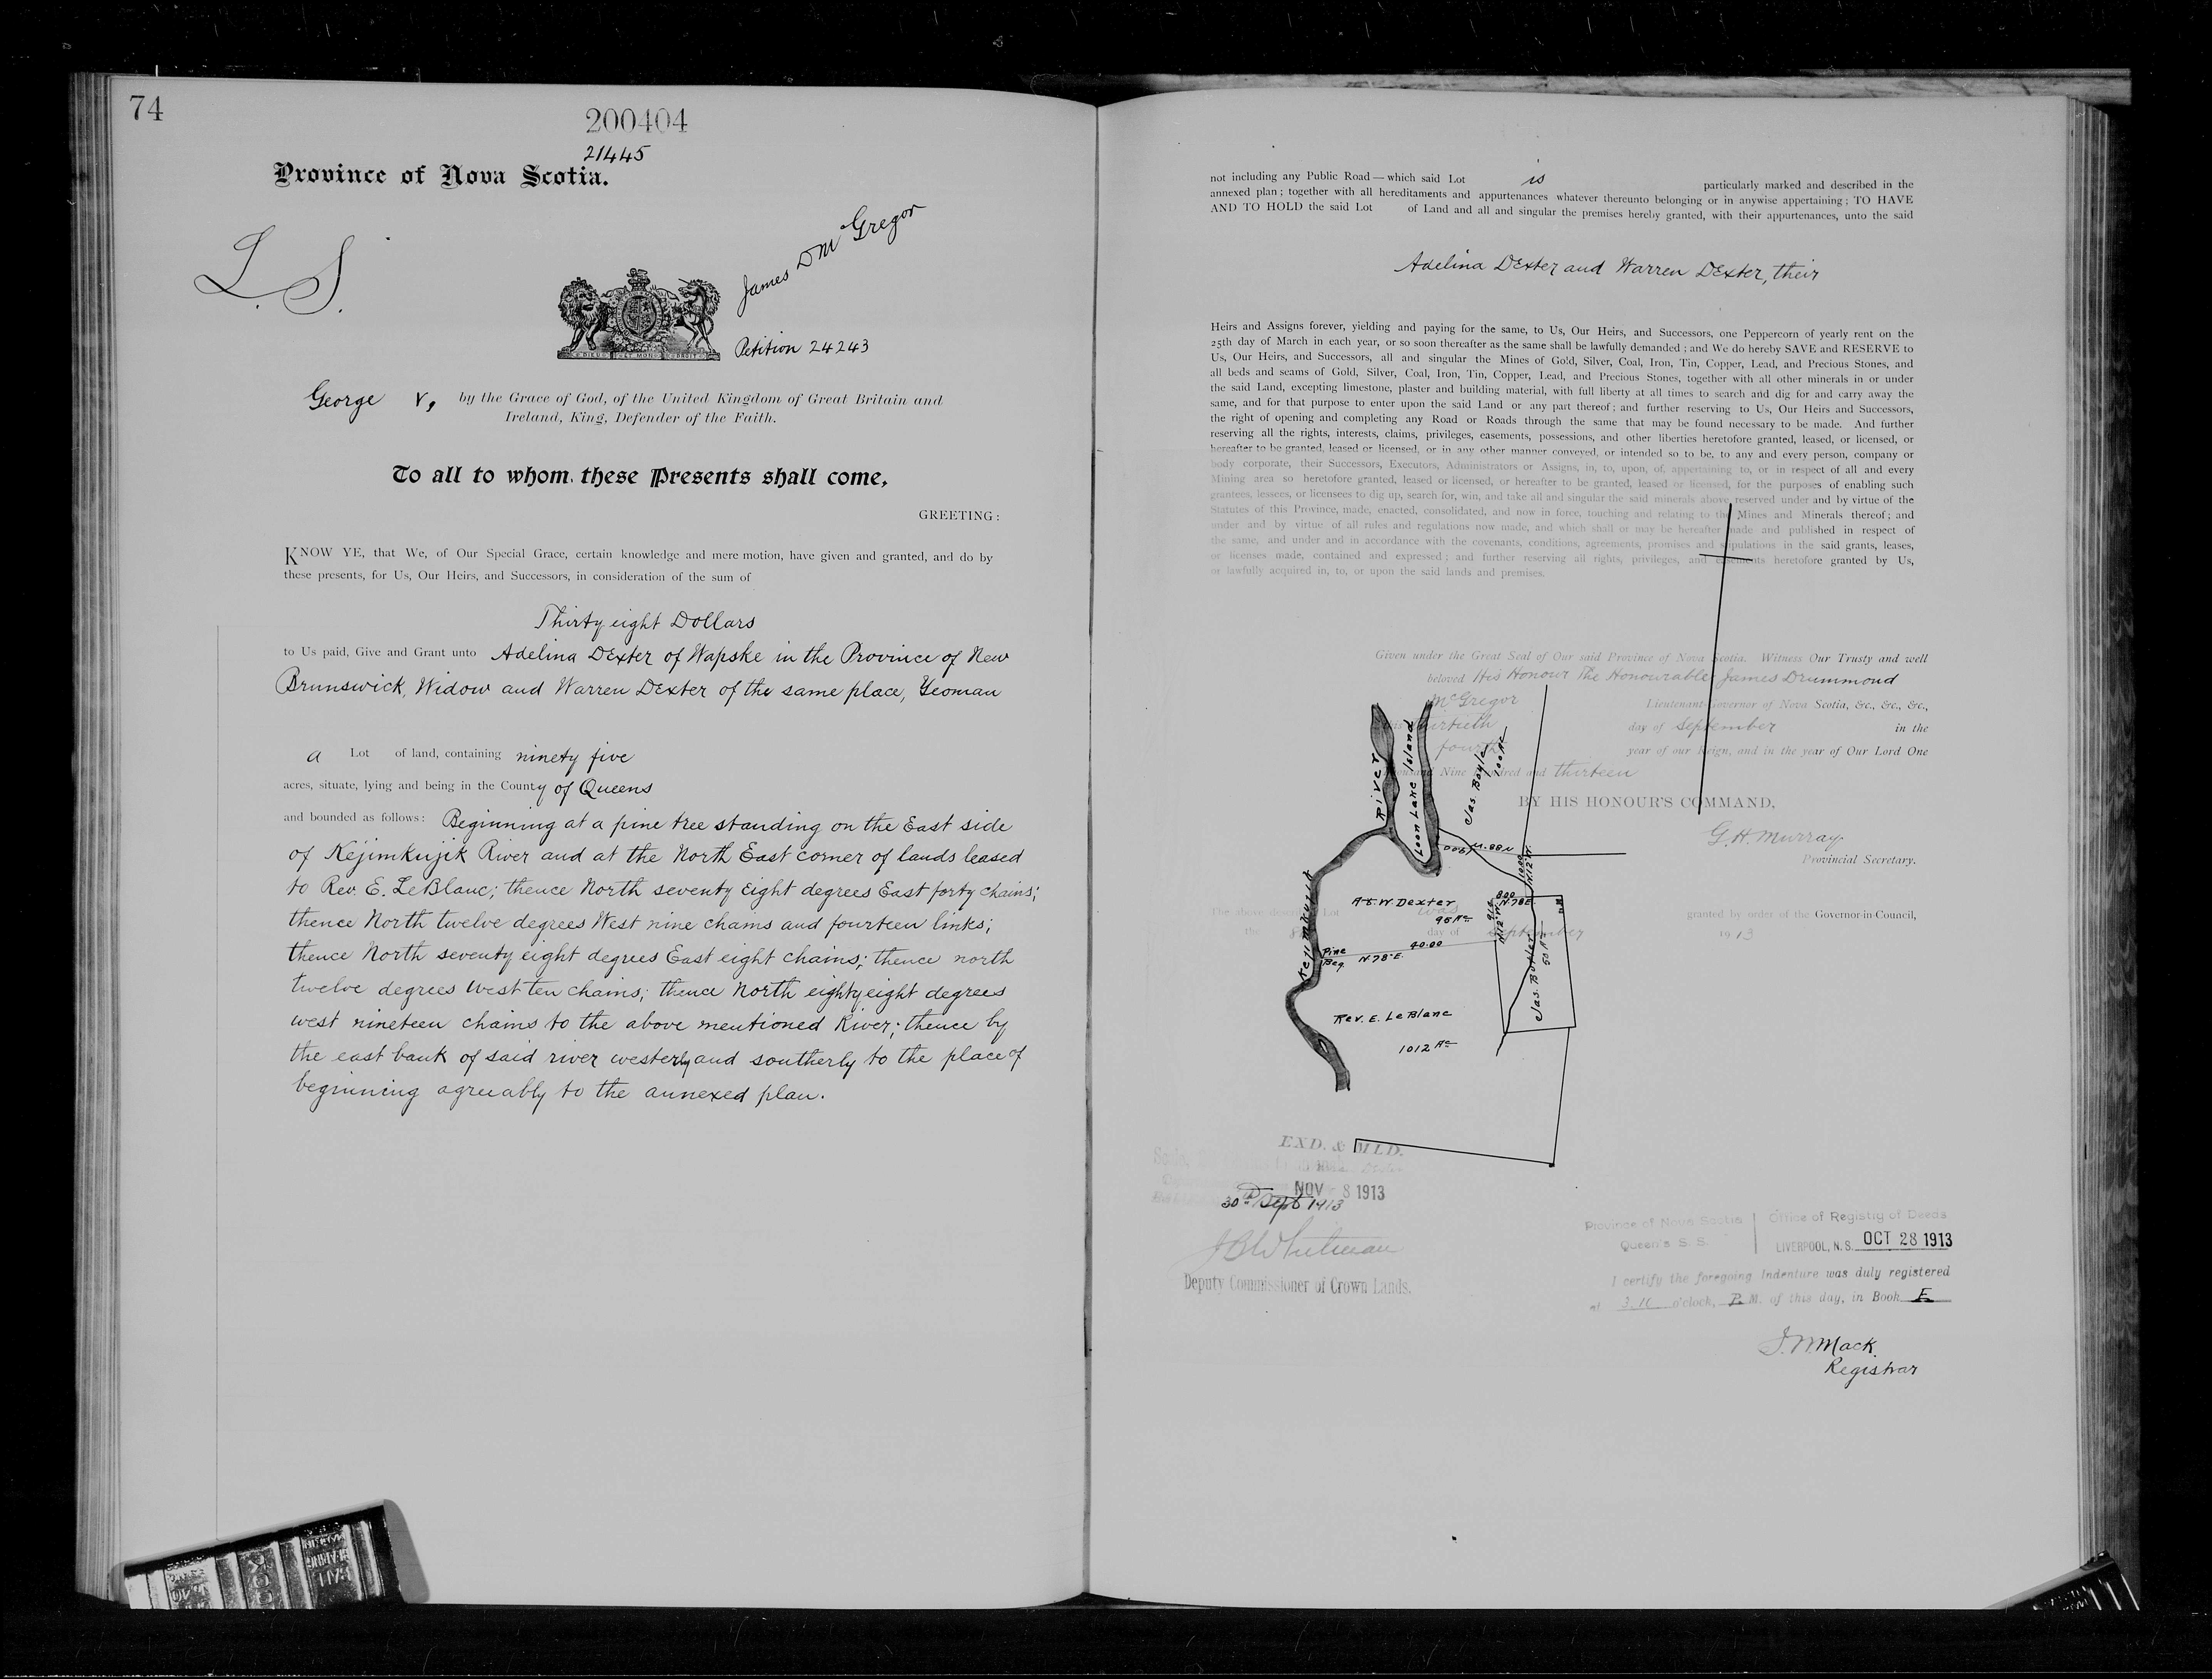 74
200404
21445
Province of Nova Scotia.
L. S.
James D McGregor
DIEU ET MON DROIT
Petition 24243
George V, by the Grace of God, of the United Kingdom of Great Britain and
Ireland, King, Defender of the Faith.
To all to whom these Presents shall come,
GREETING:
KNOW YE, that We, of Our Special Grace, certain knowledge and mere motion, have given and granted, and do by
these presents, for Us, Our Heirs, and Successors, in consideration of the sum of
Thirty eight Dollars
to Us paid, Give and Grant unto Adelina Dexter of Wapske in the Province of New
Brunswick, Widow and Warren Dexter of the same place, Yeoman
a Lot of land, containing ninety five
acres, situate, lying and being in the County of Queens
and bounded as follows: Beginning at a pine tree standing on the East side
of Kejimkujik River and at the North East corner of lands leased
to Rev. E. LeBlanc; thence North seventy eight degrees East forty chains;
thence North twelve degrees West nine chains and fourteen links;
thence North seventy eight degrees East eight chains; thence north
twelve degrees west ten chains; thence North eighty eight degrees
west nineteen chains to the above mentioned River; thence by
the east bank of said river westerly and southerly to the place of
beginning agreeably to the annexed plan.
not including any Public Road — which said Lot is particularly marked and described in the
annexed plan; together with all hereditaments and appurtenances whatever thereunto belonging or in anywise appertaining; TO HAVE
AND TO HOLD the said Lot of Land and all and singular the premises hereby granted, with their appurtenances, unto the said
Adelina Dexter and Warren Dexter, their
Heirs and Assigns forever, yielding and paying for the same, to Us, Our Heirs, and Successors, one Peppercorn of yearly rent on the
25th day of March in each year, or so soon thereafter as the same shall be lawfully demanded; and We do hereby SAVE and RESERVE to
Us, Our Heirs, and Successors, all and singular the Mines of Gold, Silver, Coal, Iron, Tin, Copper, Lead, and Precious Stones, and
all beds and seams of Gold, Silver, Coal, Iron, Tin, Copper, Lead, and Precious Stones, together with all other minerals in or under
the said Land, excepting limestone, plaster and building material, with full liberty at all times to search and dig for and carry away the
same, and for that purpose to enter upon the said Land or any part thereof; and further reserving to Us, Our Heirs and Successors,
the right of opening and completing any Road or Roads through the same that may be found necessary to be made. And further
reserving all the rights, interests, claims, privileges, easements, possessions, and other liberties heretofore granted, leased, or licensed, or
hereafter to be granted, leased or licensed, or in any other manner conveyed, or intended so to be, to any and every person, company or
body corporate, their Successors, Executors, Administrators or Assigns, in, to, upon, of, appertaining to, or in respect of all and every
Mining area so heretofore granted, leased or licensed, or hereafter to be granted, leased or licensed, for the purposes of enabling such
grantees, lessees, or licensees to dig up, search for, win, and take all and singular the said minerals above reserved under and by virtue of the
Statutes of this Province, made, enacted, consolidated, and now in force, touching and relating to the Mines and Minerals thereof; and
under and by virtue of all rules and regulations now made, and which shall or may be hereafter made and published in respect of
the same, and under and in accordance with the covenants, conditions, agreements, promises and stipulations in the said grants, leases,
or licenses made, contained and expressed; and further reserving all rights, privileges, and easements heretofore granted by Us,
or lawfully acquired in, to, or upon the said lands and premises.
Given under the Great Seal of Our said Province of Nova Scotia. Witness Our Trusty and well
beloved His Honour The Honourable James Drummond
McGregor Lieutenant-Governor of Nova Scotia, &c., &c., &c.,
this thirtieth day of September in the
fourth year of our Reign, and in the year of Our Lord One
Thousand Nine Hundred and thirteen
BY HIS HONOUR'S COMMAND,
G. H. Murray
Provincial Secretary.
River
Loon Lake Island
Jas. Boyle
100 Ac
1900 N. 88 W
10.00
N 12 W.
8.00
N. 78 E.
A & W. Dexter
95 Ac
9.14
N 12 W.
40.00
N. 78° E.
Pine
Beg.
Kejimkujik
Jas. Butler
50 Ac
Rev. E. LeBlanc
1012 Ac
The above described Lot was granted by order of the Governor-in-Council,
the day of September 1913
EXD. & MLD.
NOV 8 1913
30th Sept 1913
J B Whitman
Deputy Commissioner of Crown Lands.
Province of Nova Scotia
Queen's S. S.
Office of Registry of Deeds
LIVERPOOL, N. S. OCT 28 1913
I certify the foregoing Indenture was duly registered
at o'clock, P. M. of this day, in Book E
Mack
Registrar